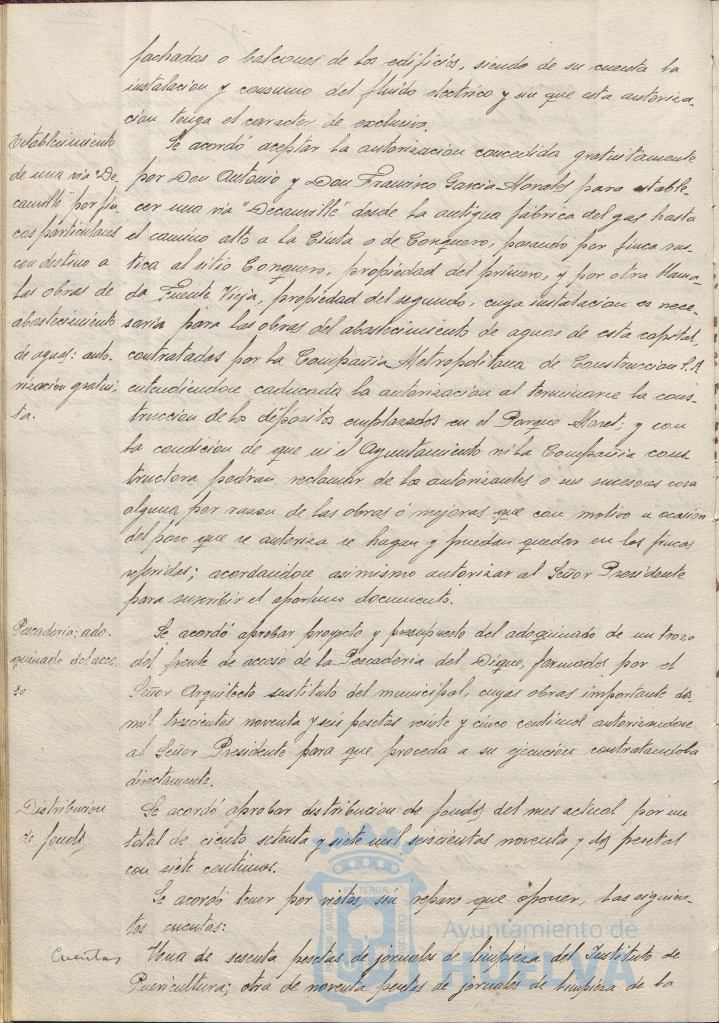 fachadas o balcones de los edificios, siendo de su cuenta la
instalacion y consumo del fluido electrico y sin que esta autoriza-
cion tenga el caracter de exclusiva.
Establecimiento
de una via "De-
cauville" por fin-
cas particulares
con destino a
las obras de
abastecimiento
de aguas: auto-
rizacion gratui-
ta.
Se acordó aceptar la autorizacion concedida gratuitamente
por Don Antonio y Don Francisco Garcia Morales para estable-
cer una via "Decauville" desde la antigua fábrica del gas hasta
el camino alto a la Cinta o de Conquero, pasando por finca rus-
tica al sitio Conquero, propiedad del primero, y por otra llama-
da Fuente Vieja, propiedad del segundo, cuya instalacion es nece-
saria para las obras del abastecimiento de aguas de esta capital,
contratadas por la Compañia Metropolitana de Construccion S.A
entendiendose caducada la autorizacion al terminarse la cons-
truccion de los depositos emplazados en el Parque Moret; y con
la condicion de que ni el Ayuntamiento ni la Compañia cons-
tructora podran reclamar de los autorizantes o sus sucesores cosa
alguna por razon de las obras ó mejoras que con motivo u ocasion
del paso que se autoriza se hagan y puedan quedar en las fincas
referidas; acordandose asimismo autorizar al Señor Presidente
para suscribir el oportuno documento.
Pescaderia; ado-
quinado del acce-
so
Se acordó aprobar proyecto y presupuesto del adoquinado de un trozo
del frente de acceso de la Pescaderia del Dique, formados por el
Señor Arquitecto sustituto del municipal, cuyas obras importante dos
mil trescientas noventa y seis pesetas veinte y cinco centimos autorizandose
al Señor Presidente para que proceda a su ejecucion contratandola
directamente.
Distribucion
de fondos
Se acordó aprobar distribucion de fondos del mes actual por un
total de ciento setenta y siete mil seiscientas noventa y dos pesetas
con siete centimos.
Se acordó tener por vistas, sin reparo que oponer, las siguien-
tes cuentas:
Cuentas
Una de sesenta pesetas de jornales de limpieza del Instituto de
Puericultura; otra de noventa pesetas de jornales de limpieza de la
Ayuntamiento de
HUELVA